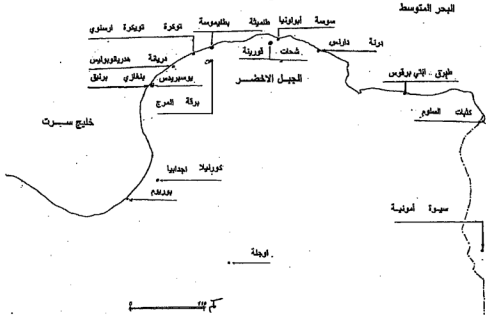 البحر المتوسط
سوسة أبولونيا
طلميثة بطليموسة
توكرة تويكرة ارسنوي
درنة دارنس
شحات قورينة
دريانة هدريانوبوليس
طبرق .. انتي برقوس
بوسبريدس بنغازي برنيق
الجبل الاخضر
برقة المرج
كتبات السلوم
خليج سرت
كورنيلا اجدابيا
بوريوم
سيوة أمونية
اوجلة
كم